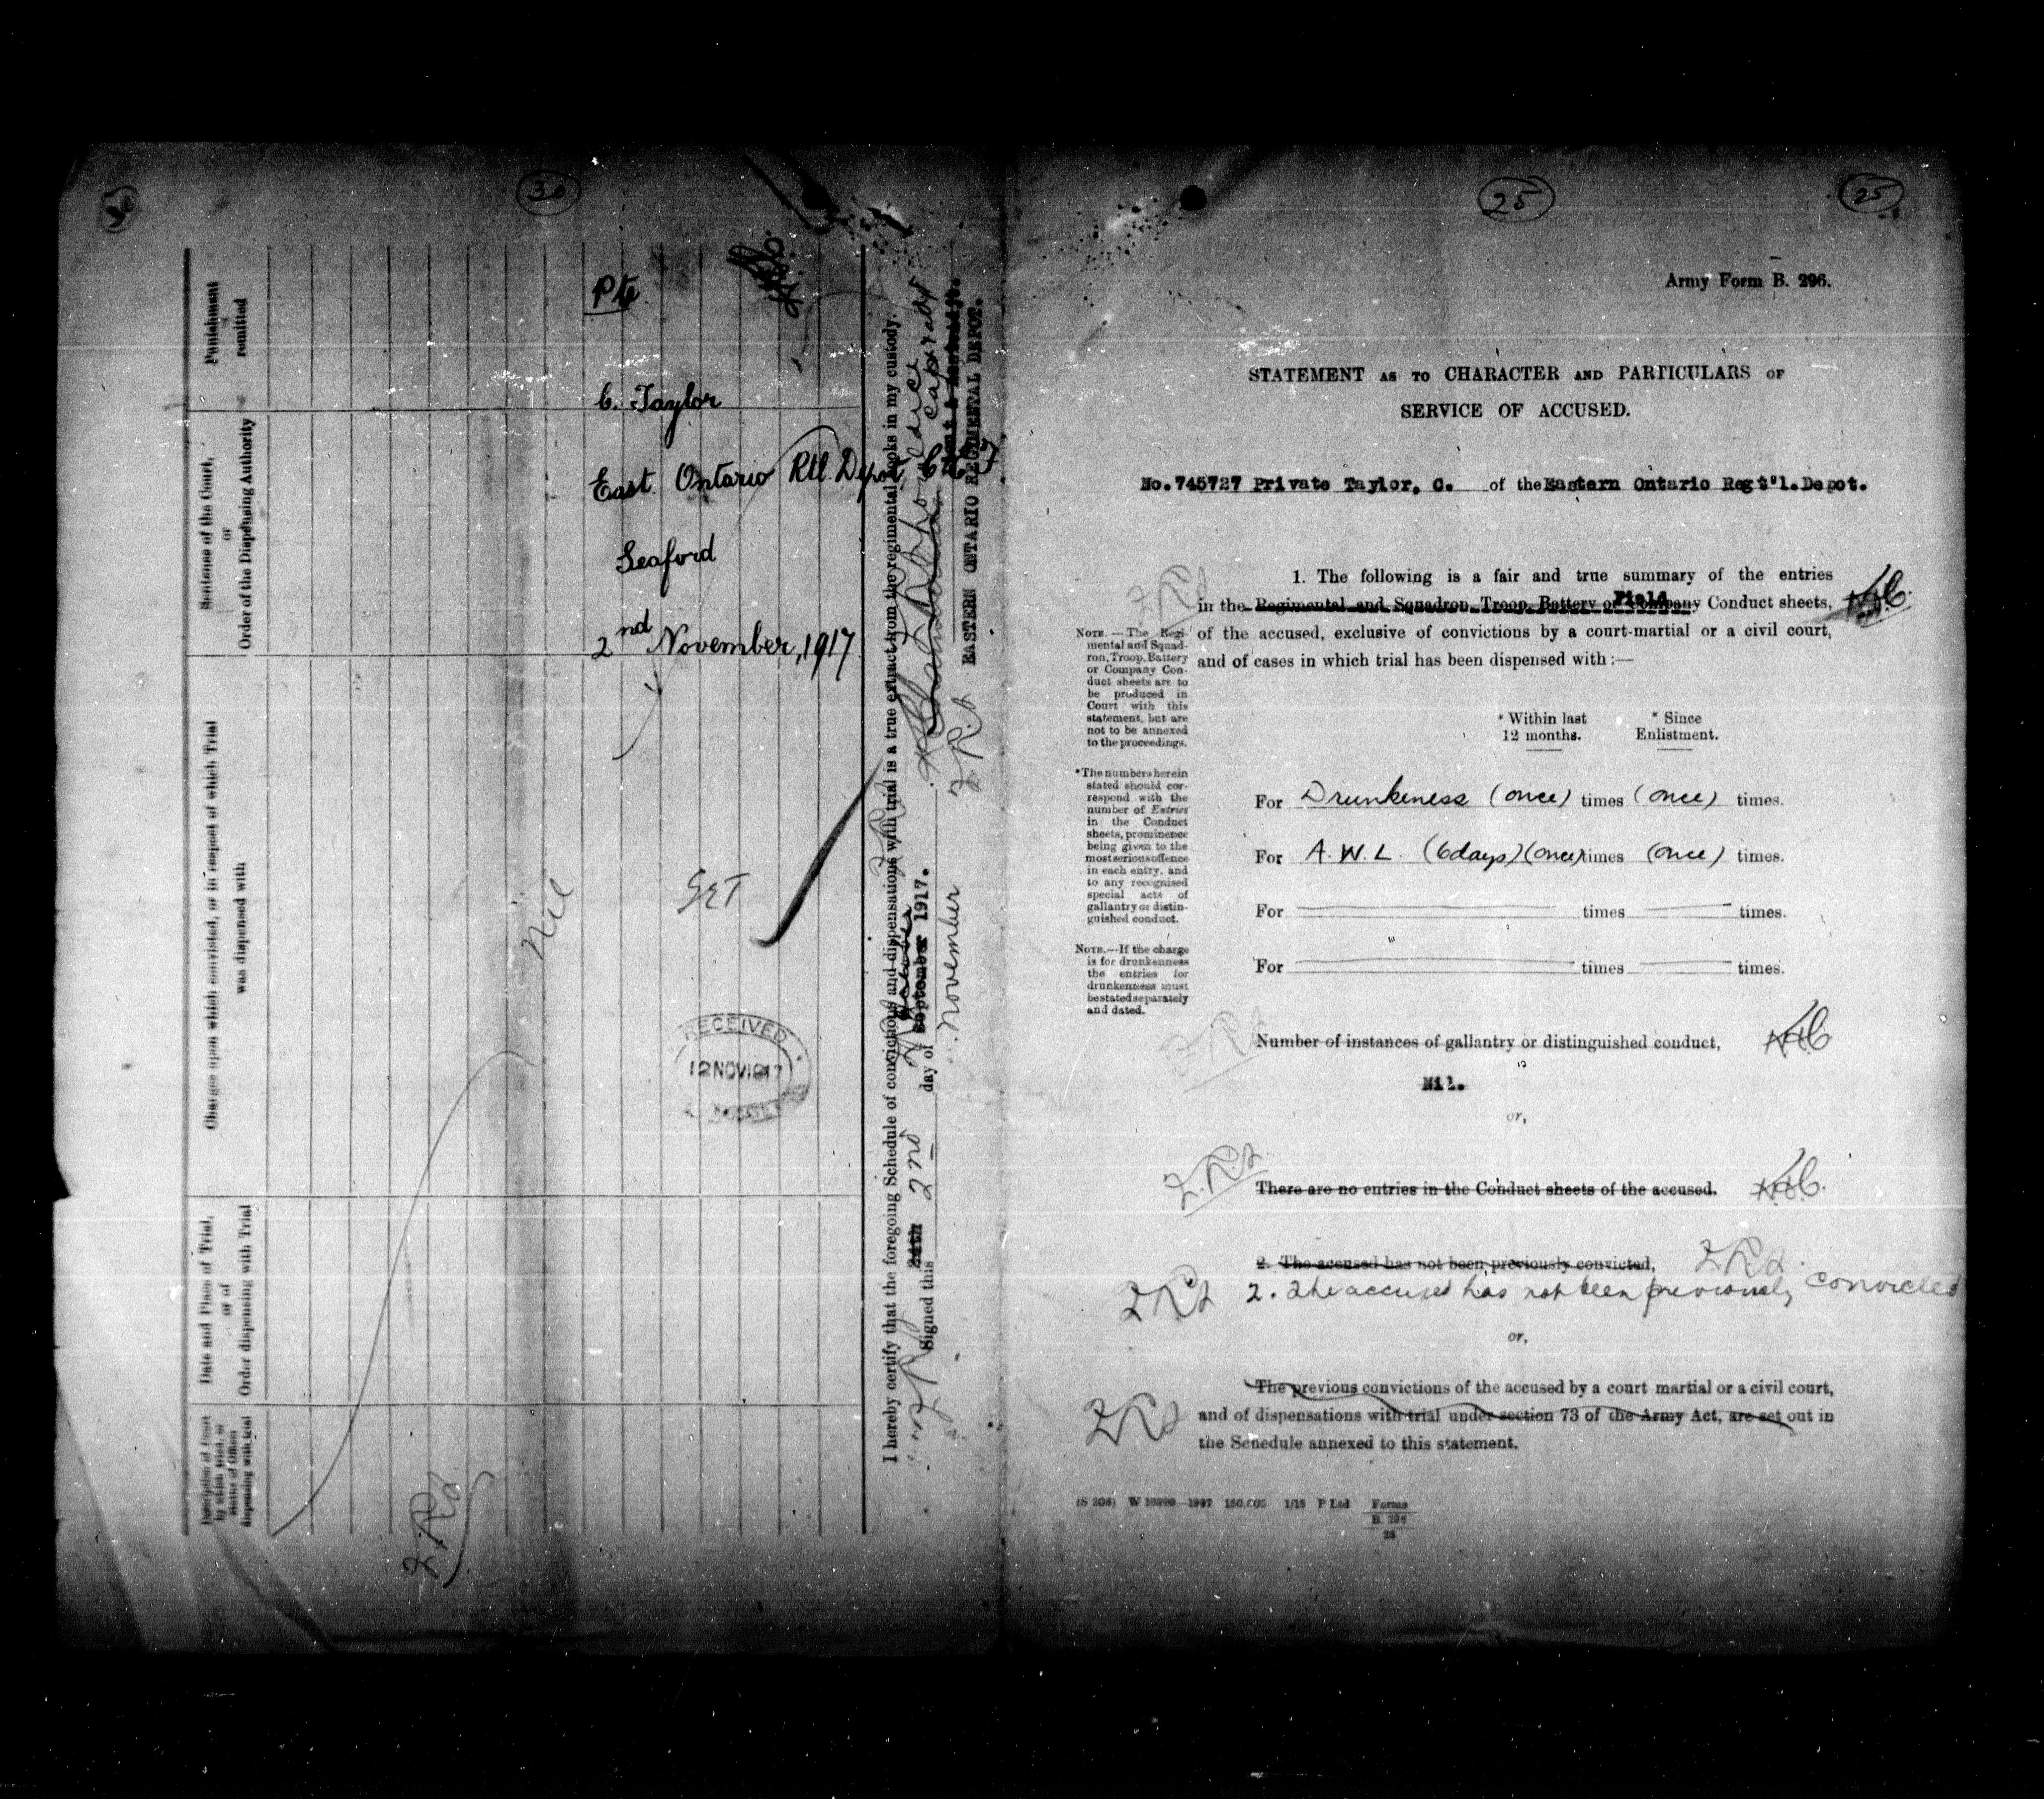 30
Punishment
remitted
Sentence of the Court,
or
Order of the Dispensing Authority
Charges upon which convicted, or in respect of which Trial
was dispensed with
Date and Place of Trial,
or of
Order dispensing with Trial
Description of Court
by which tried, or
dispensing with trial
Nil
Pte
C. Taylor
East Ontario Rtl. Depot
Seaford
2nd November, 1917
GET
RECEIVED
12 NOV 1917
I hereby certify that the foregoing Schedule of convictions and dispensations with trial is a true extract from the regimental books in my custody.
Signed this 24th 2nd day of September 1917.
October
November
EASTERN ONTARIO REGIMENTAL DEPOT.
25
25
Army Form B. 296.
STATEMENT AS TO CHARACTER AND PARTICULARS OF
SERVICE OF ACCUSED.
No. 745727 Private Taylor, C. of the Eastern Ontario Regt'l. Depot.
1. The following is a fair and true summary of the entries
Field
in the Regimental and Squadron, Troop, Battery or Company Conduct sheets,
of the accused, exclusive of convictions by a court-martial or a civil court,
and of cases in which trial has been dispensed with :—
NOTE.—The Regi-
mental and Squad-
ron, Troop, Battery
or Company Con-
duct sheets are to
be produced in
Court with this
statement, but are
not to be annexed
to the proceedings.
* Within last
12 months.
* Since
Enlistment.
*The numbers herein
stated should cor-
respond with the
number of Entries
in the Conduct
sheets, prominence
being given to the
most serious offence
in each entry, and
to any recognised
special acts of
gallantry or distin-
guished conduct.
For Drunkeness (once) times (once) times.
For A.W.L. (6 days) (once) times (once) times.
For times times.
For times times.
NOTE.—If the charge
is for drunkenness
the entries for
drunkenness must
be stated separately
and dated.
Number of instances of gallantry or distinguished conduct,
Nil.
or,
There are no entries in the Conduct sheets of the accused.
2. The accused has not been previously convicted,
2. The accused has not been previously convicted
or,
The previous convictions of the accused by a court martial or a civil court,
and of dispensations with trial under section 73 of the Army Act, are set out in
the Schedule annexed to this statement.
Forms
B. 296